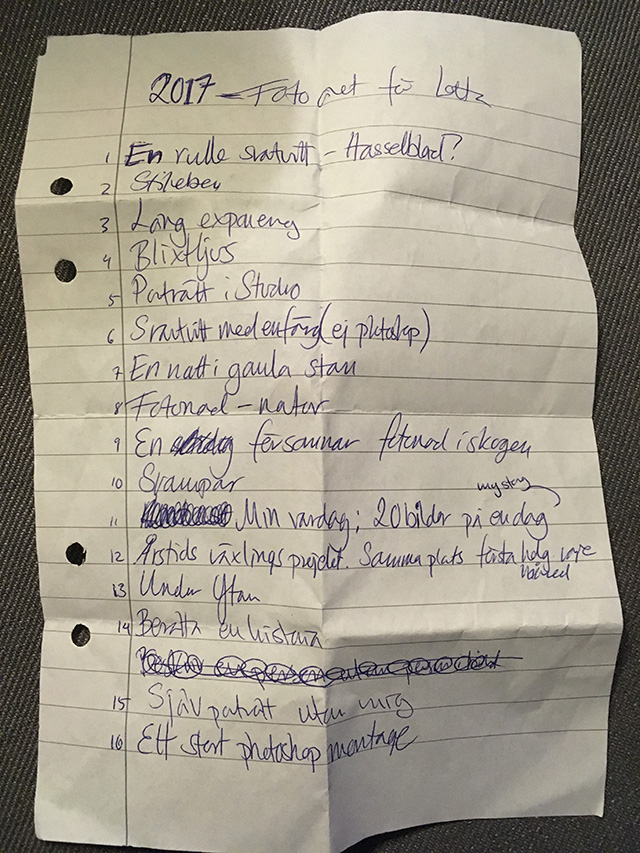 2017 – Foto året för Lotta
1 En rulle svartvitt – Hasselblad?
2 Stilleben
3 Lång exponeng
4 Blixtljus
5 Porträtt i Studio
6 Svartvitt med en färg (ej photoshop)
7 En natt i gamla stan
8 Fotonad – natur
9 En försommar fotonad i skogen
10 Svampar
my story
11 Min vardag; 20 bilder på en dag
12 Årstids växlings projekt. Samma plats första helg varje
månad
13 Under Ytan
14 Berätta en historia
15 Själv porträtt utan mig
16 Ett stort photoshop montage